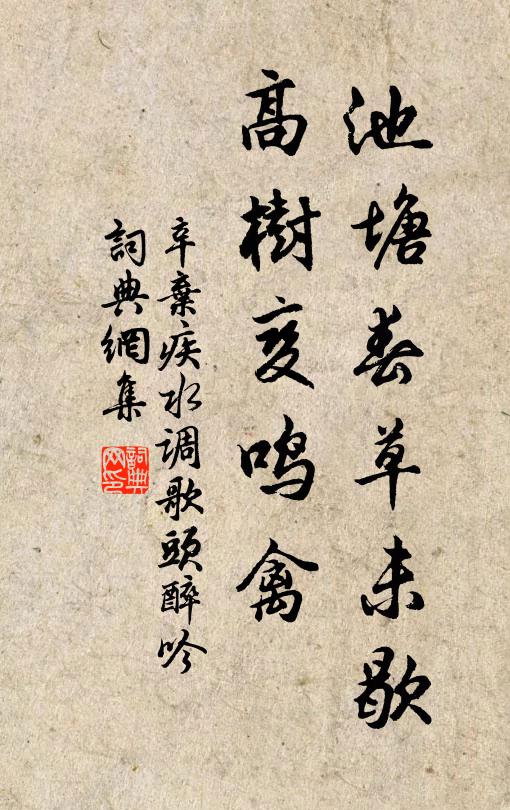 池塘春草未歇
高樹变鸣禽
辛棄疾水调歌頭醉吟
詞典網集
詞典网印